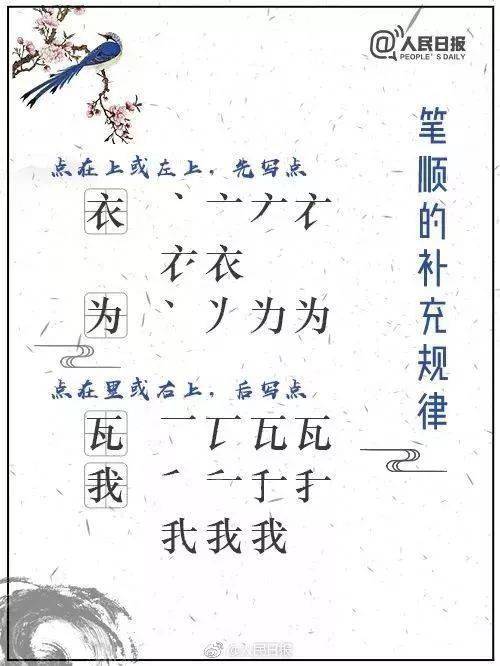 @人民日报
PEOPLE'S DAILY
笔顺的补充规律
点在上或左上，先写点
衣 丶 亠 𠂇 衣
衣
为 丶 丷 为 为
点在里或右上，后写点
瓦 一 瓦
我 丿 二 于 扌
我 我
@人民日报